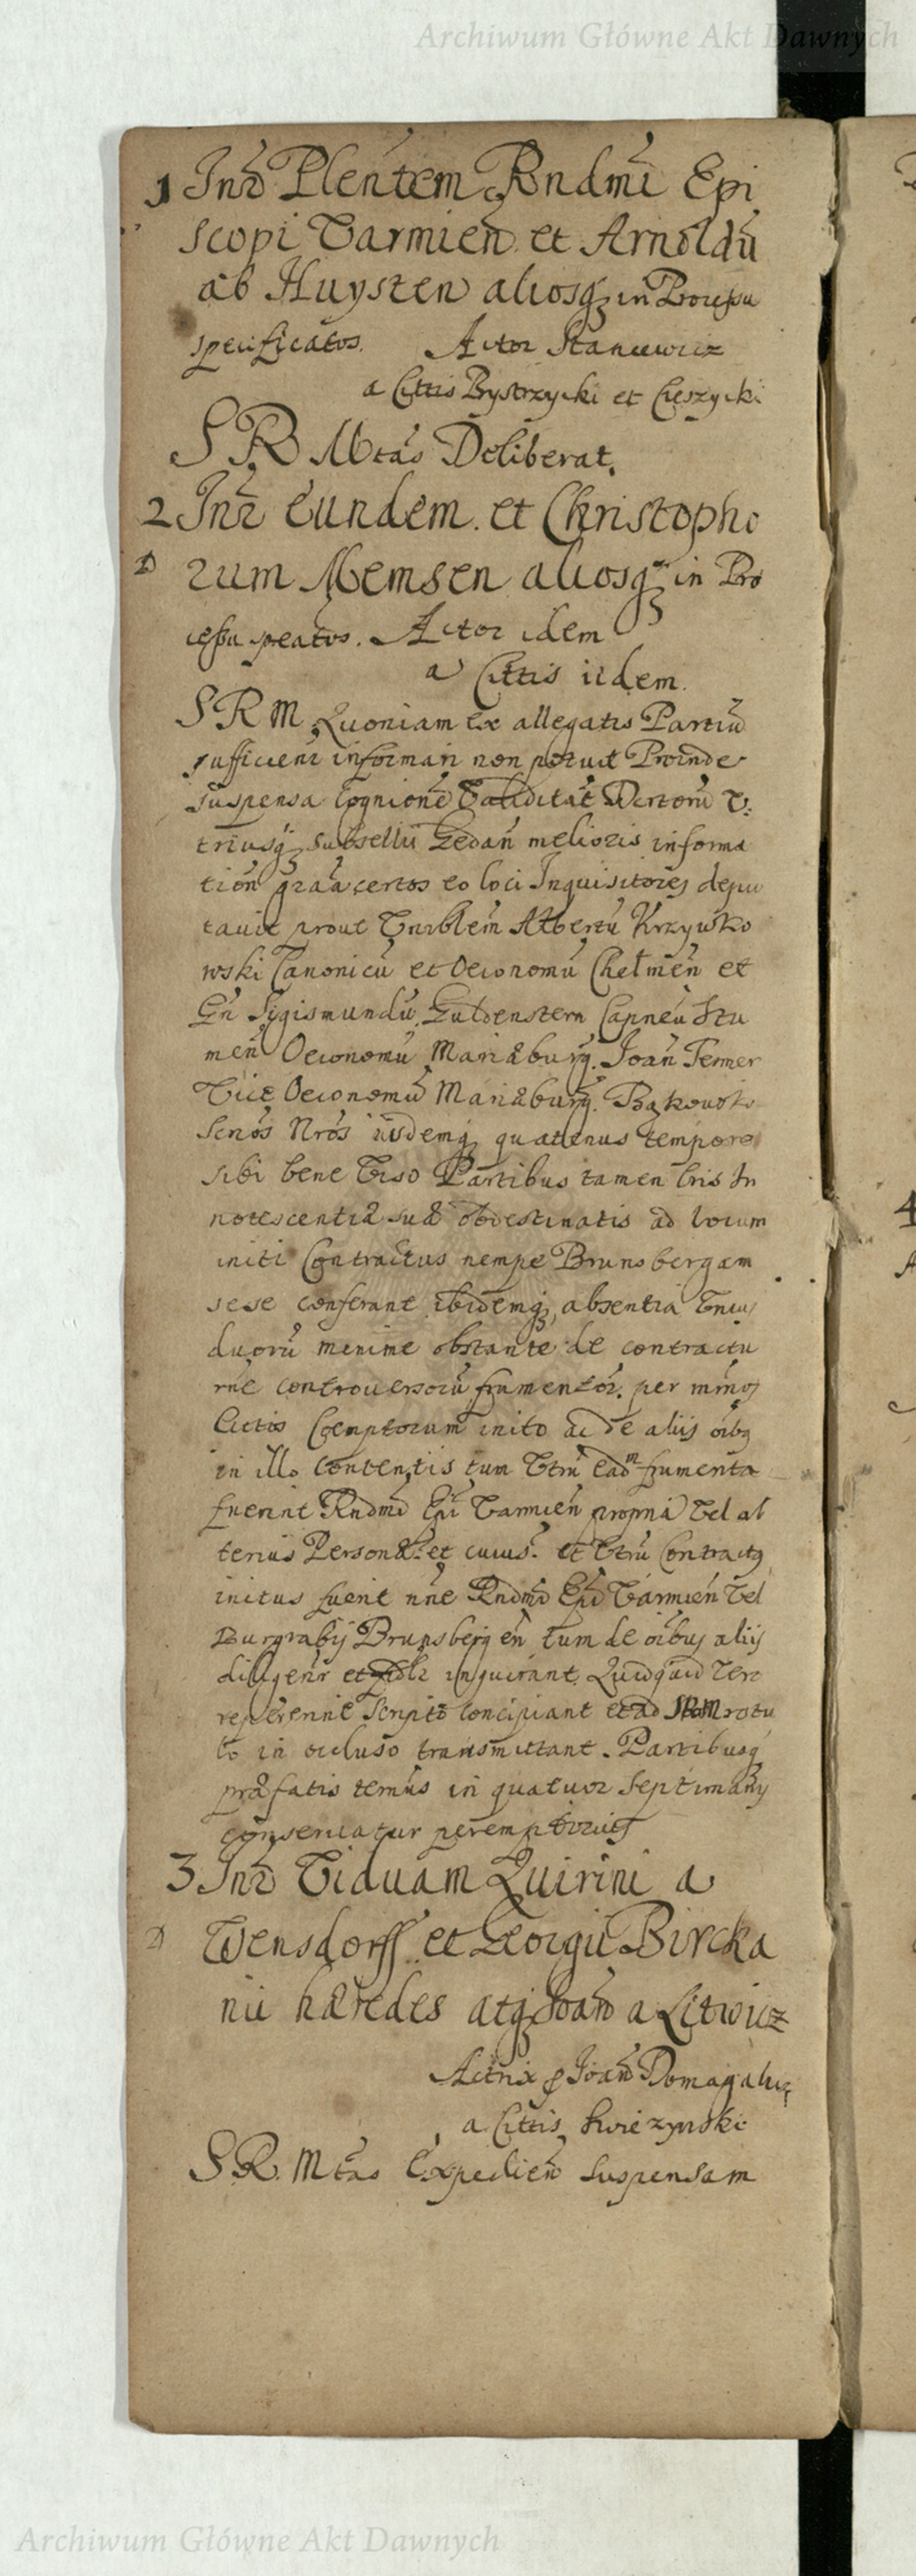 Archiwum Główne Akt Dawnych
1 Inr̄ Plentem Rndmi Epi
scopi Varmien̄ et Arnoldū
ab Huysten aliosq̨ in Processu
specificatos. Actor Stancewicz
a Cittis Bystrzycki et Cieszycki
S R Mtas Deliberat.
2 Inr̄ Eundem et Christopho
rum Memsen aliosq̨ in Pro
cessu speatos. Actor idem
a Cittis iidem.
S R M Quoniam ex allegatis Partiū
sufficienr informari non potuit Proinde
suspensa Cognione Validitat Decretorū V:
triusq̨ subsellii Gedan̄ melioris informa
tion̄ graa certos eo loci Inquisitores depu
tavit prout Vnrblem Albertū Krzywko
wski Canonicū et Oeconomū Chełmen̄ et
Gn̄ Sigismundū Guldenstern Capneū Stu
men̄ Oeconomū Mariæburg. Joan̄ Fermer
Vice Oeconomū Mariæburg. Bąkowsk
Scnos Nros iisdemq̨ quatenus tempore
sibi bene Viso Partibus tamen lris In
notescentiæ suæ obdestinatis ad locum
initi Contractus nempe Brunsbergam
sese conferant ibidemq̨ absentia Vnius
duorū minime obstante de contractu
rne controversorū frumentor. per mnos
Cittos Coemptorum inito ac de aliis oibq
in illo contentis tum Vtrū eadm frumenta
fuerint Rndmi Epi Varmien̄ propria Vel al
terius Personæ et cuius. et Vtrū Contractq
initus fuerit nne Rndmi Epi Varmien̄ Vel
Burgrabij Brunsbergen̄ tum de oibus aliis
diligenr et fidlr inquirant. Quidquid Vero
repererint scripto concipiant et ad SRM rotu
lo in occluso transmittant. Partibusq̨
præfatis termus in quatuor Septimanis
conservatur peremptorius
3 Inr̄ Viduam Quirini a
Wensdorff et Georgii Bircka
nii hæredes atq̨ Joan̄ a Litwicz
Actrix p Joan̄ Domagalicz
a Cittis Swiezynski
S R Mtas Expedien̄ suspensam
Archiwum Główne Akt Dawnych